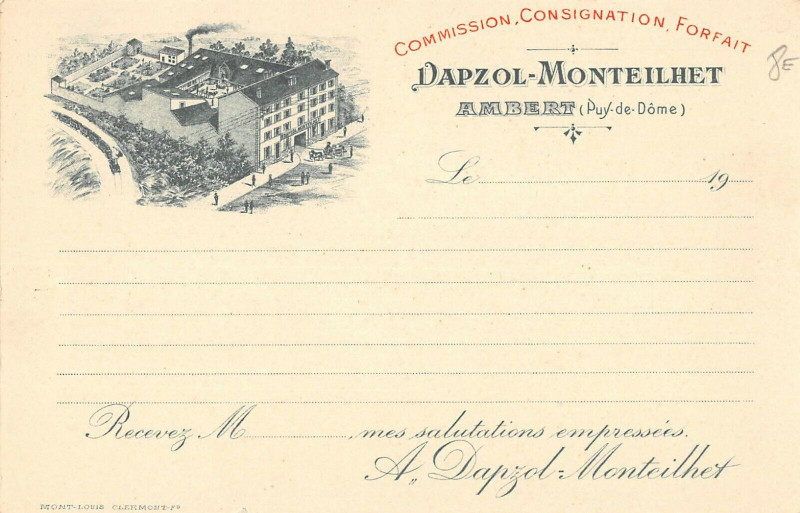 COMMISSION, CONSIGNATION, FORFAIT
DAPZOL-MONTEILHET
AMBERT (Puy-de-Dôme)
Le 19
Recevez M , mes salutations empressées.
A,, Dapzol-Monteilhet
MONT-LOUIS CLERMONT-Fd